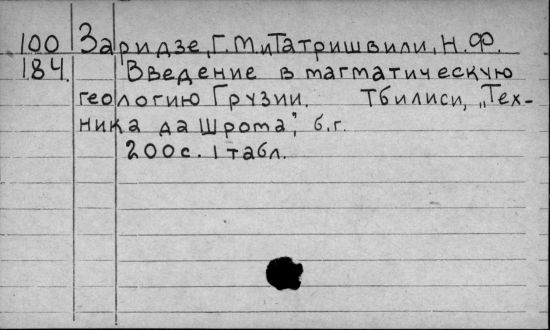 100 Заридзе, Г.М. и Татришвили, Н.Ф.
184. Введение в магматическую
геологию Грузии. Тбилиси, „Тех-
ника да Шрома", б.г.
200с. 1 табл.